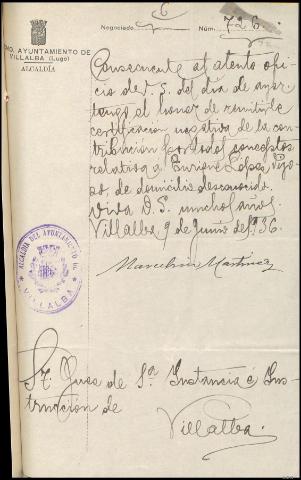 6
Negociado
Núm. 726.
MO. AYUNTAMIENTO DE
VILLALBA (Lugo)
ALCALDÍA
Consecuente al atento ofi-
cio de V. S. del dia de ayer
tengo el honor de remitirle
certificacion negativa de la con-
tribución por todos conceptos
relativa a Enrique López
de domicilio desconocido.
Viva V. S. muchos años.
Villalba, 9 de Junio de 1936.
Marcelino Martinez
ALCALDIA DEL AYUNTAMIENTO DE
VILLALBA
Sr. Juez de 1ª Instancia é Ins-
trucción de
Villalba.